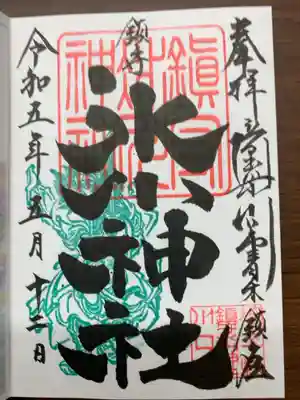 奉拝
青木鎮座
鎮守
氷川神社
令和五年五月十二日
鎮守
氷川
神社